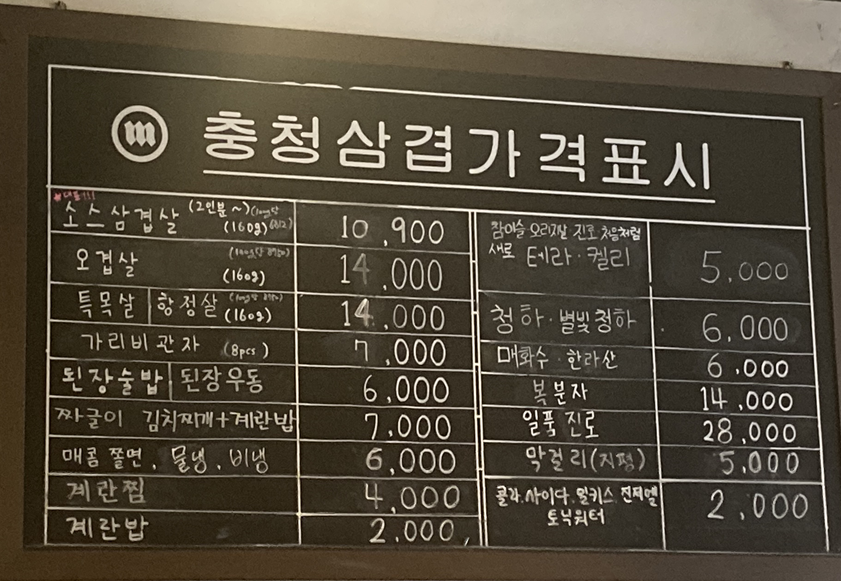 m 충청삼겹가격표시
대표!!!
소스삼겹살 (2인분~) (160g) 10,900
오겹살 (160g) 14,000
특목살 | 항정살 (160g) 14,000
가리비 관자 (8pcs) 7,000
된장술밥 | 된장우동 6,000
짜글이 김치찌개+계란밥 7,000
매콤쫄면, 물냉, 비냉 6,000
계란찜 4,000
계란밥 2,000,
참이슬 오리지날 진로 처음처럼
새로 테라·켈리 5,000
청하·별빛청하 6,000
매화수·한라산 6,000
복분자 14,000
일품진로 28,000
막걸리(지평) 5,000
콜라.사이다.밀키스.진저엘
토닉워터 2,000